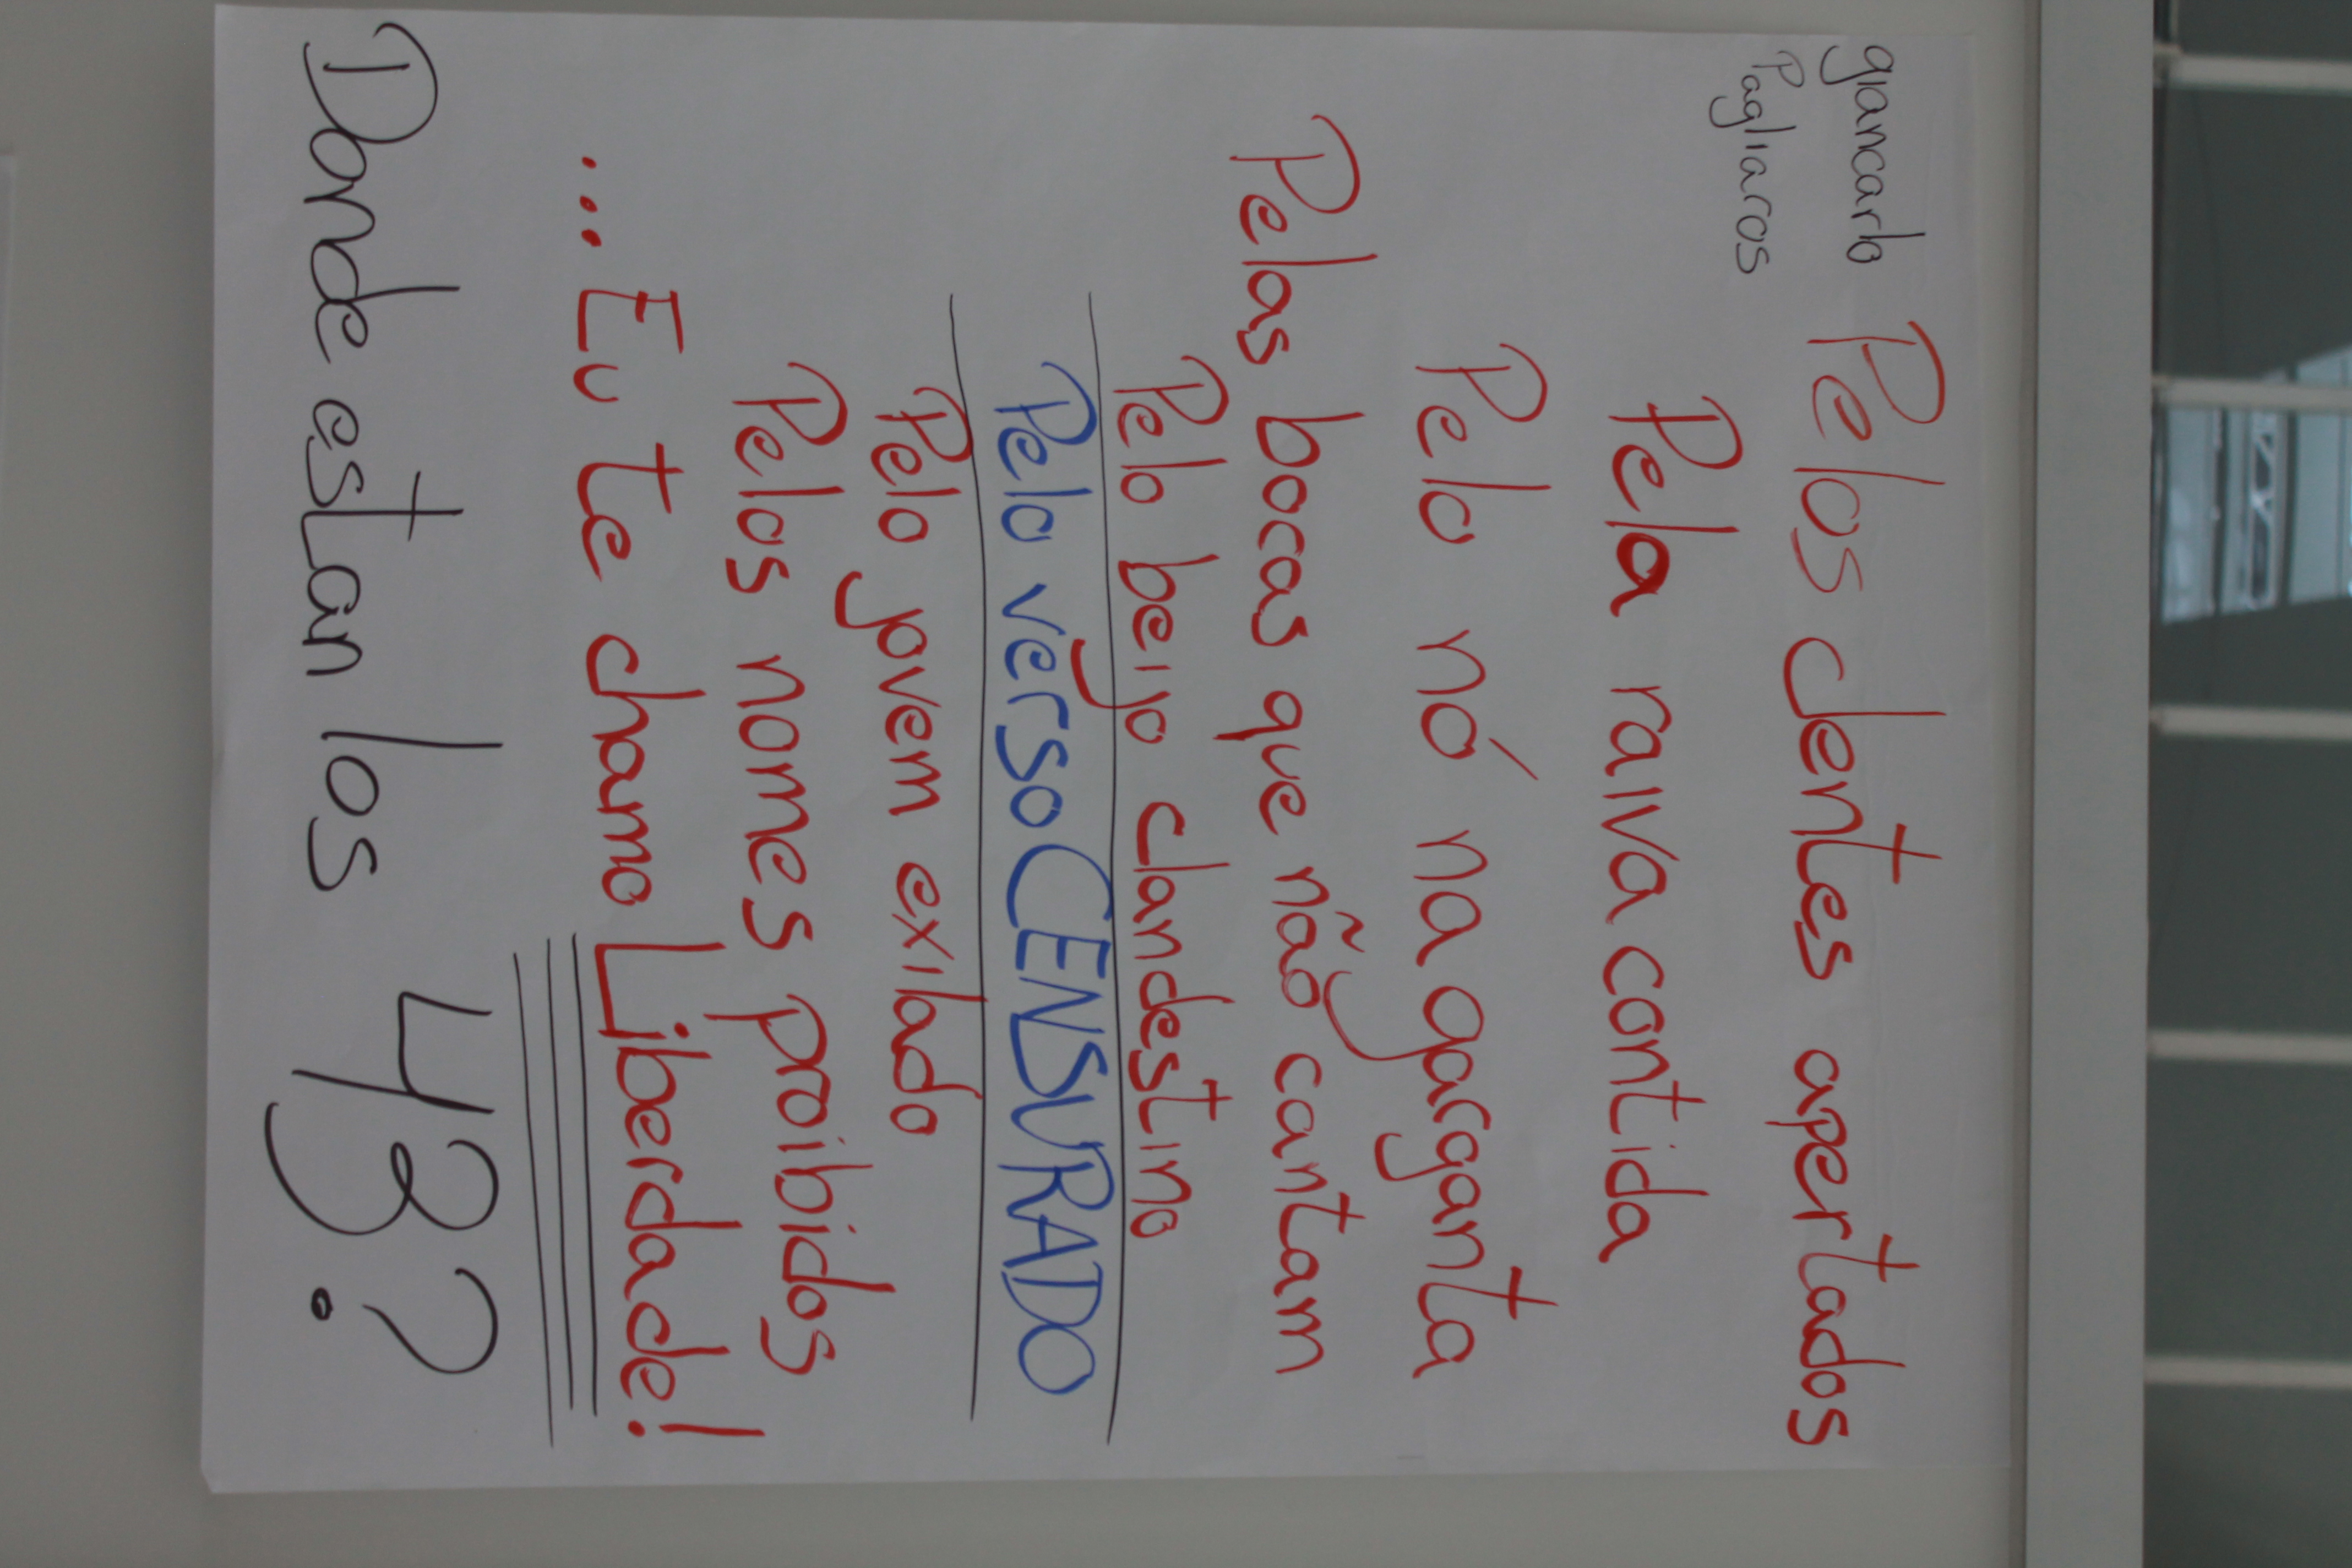 giancarlo
Pagliacos
Pelos dentes apertados
Pela raiva contida
Pelo nó na garganta
Pelas bocas que não cantam
Pelo beijo clandestino
Pelo verso CENSURADO
Pelo jovem exilado
Pelos nomes proibidos
... Eu te chamo Liberdade!
Donde estan los 43?